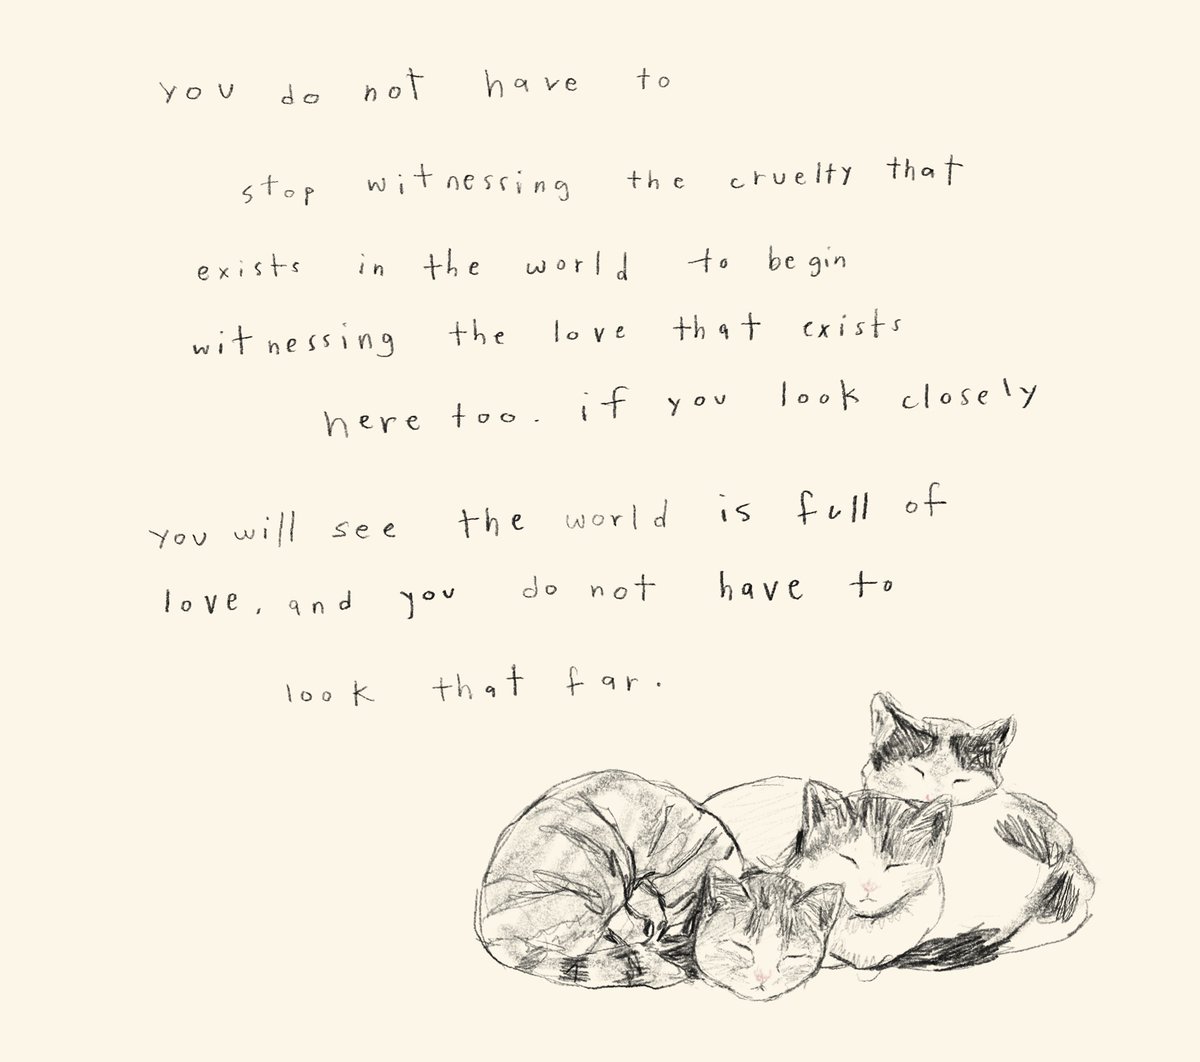 you do not have to
stop witnessing the cruelty that
exists in the world to begin
witnessing the love that exists
here too. if you look closely
you will see the world is full of
love, and you do not have to
look that far.